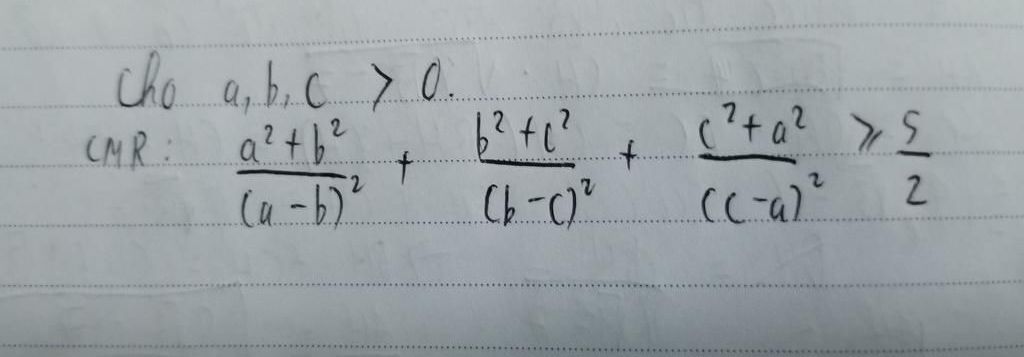 Cho a, b, c > 0.
CMR: \frac{a^2+b^2}{(a-b)^2} + \frac{b^2+c^2}{(b-c)^2} + \frac{c^2+a^2}{(c-a)^2} ⩾ \frac{5}{2}